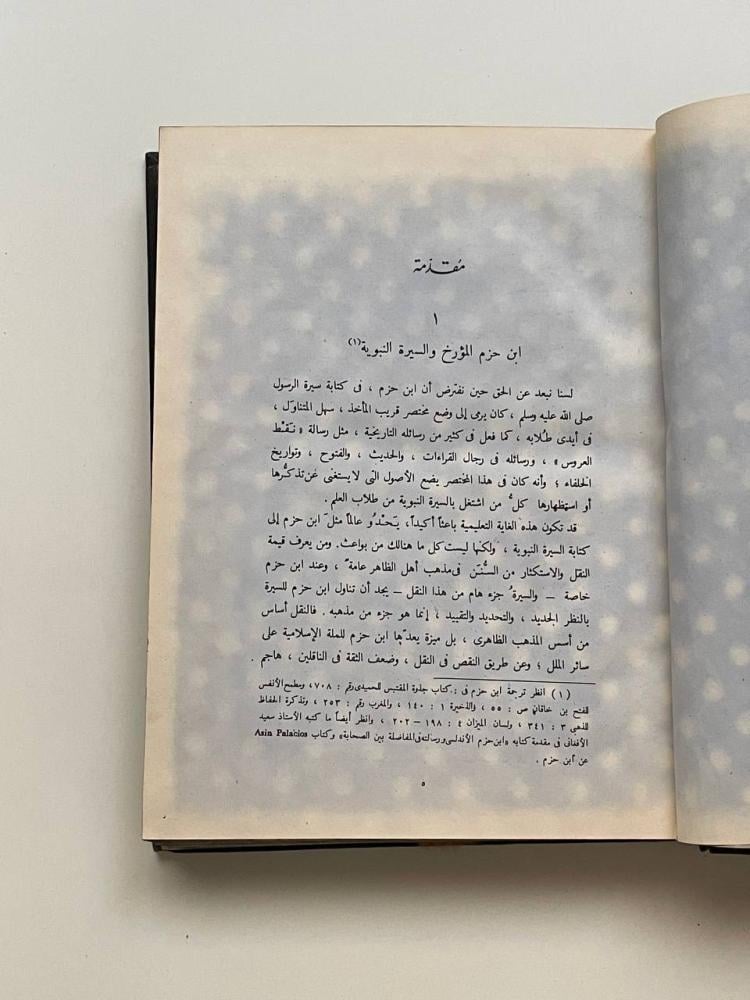 مُقدّمة
١
ابن حزم المؤرخ والسيرة النبوية(١)
لسنا نبعد عن الحق حين نفترض أن ابن حزم ، فى كتابة سيرة الرسول
صلى الله عليه وسلم ، كان يرمى إلى وضع مختصر قريب المأخذ ، سهل المتناوَل ،
فى أيدى طُلابه ، كما فعل فى كثير من رسائله التاريخية ، مثل رسالة « نَقْط
العروس » ، ورسائله فى رجال القراءات ، والحديث ، والفتوح ، وتواريخ
الخلفاء ؛ وأنه كان فى هذا المختصر يضع الأصول التى لا يستغنى عن تذكُّرها
أو استظهارها كلُّ من اشتغل بالسيرة النبوية من طلاب العلم .
قد تكون هذه الغاية التعليمية باعثاً أكيداً، يَحْدُو عالماً مثلَ ابن حزم إلى
كتابة السيرة النبوية ، ولكنها ليست كل ما هنالك من بواعث. ومن يعرف قيمة
النقل والاستكثار من السُّنَن فى مذهب أهل الظاهر عامةً ، وعند ابن حزم
خاصة – والسيرةُ جزء هام من هذا النقل – يجد أن تناول ابن حزم للسيرة
بالنظر الجديد ، والتحديد والتقييد ، إنما هو جزء من مذهبه . فالنقل أساس
من أسس المذهب الظاهرى ، بل ميزة يعدّها ابن حزم للملة الإسلامية على
سائر الملل ؛ وعن طريق النقص فى النقل ، وضعف الثقة فى الناقلين ، هاجم .
(١) انظر ترجمة ابن حزم فى : كتاب جذوة المقتبس للحميدى رقم : ٧٠٨، ومطمح الأنفس
للفتح بن خاقان ص : ٥٥ ، والذخيرة ١ : ١٤٠ ، والمغرب رقم : ٢٥٣ ، وتذكرة الحفاظ
للذهبى ٣ : ٣٤١ ، ولسان الميزان ٤ : ١٩٨ – ٢٠٢ ، وانظر أيضاً ما كتبه الأستاذ سعيد
الأفغانى فى مقدمة كتابه «ابن حزم الأندلسى ورسالته فى المفاضلة بين الصحابة» وكتاب Asin Palacios
عن ابن حزم .
٥